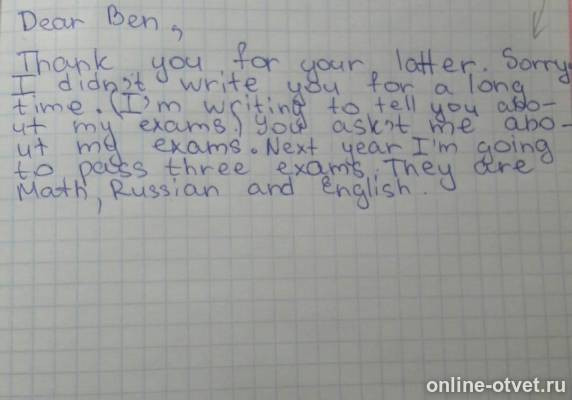 Dear Ben,
Thank you for your latter. Sorry.
I didn't write you for a long
time. (I'm writing to tell you abo-
ut my exams.) You ask't me abo-
ut my exams. Next year I'm going
to pass three exams. They are
Math, Russian and English.
online-otvet.ru